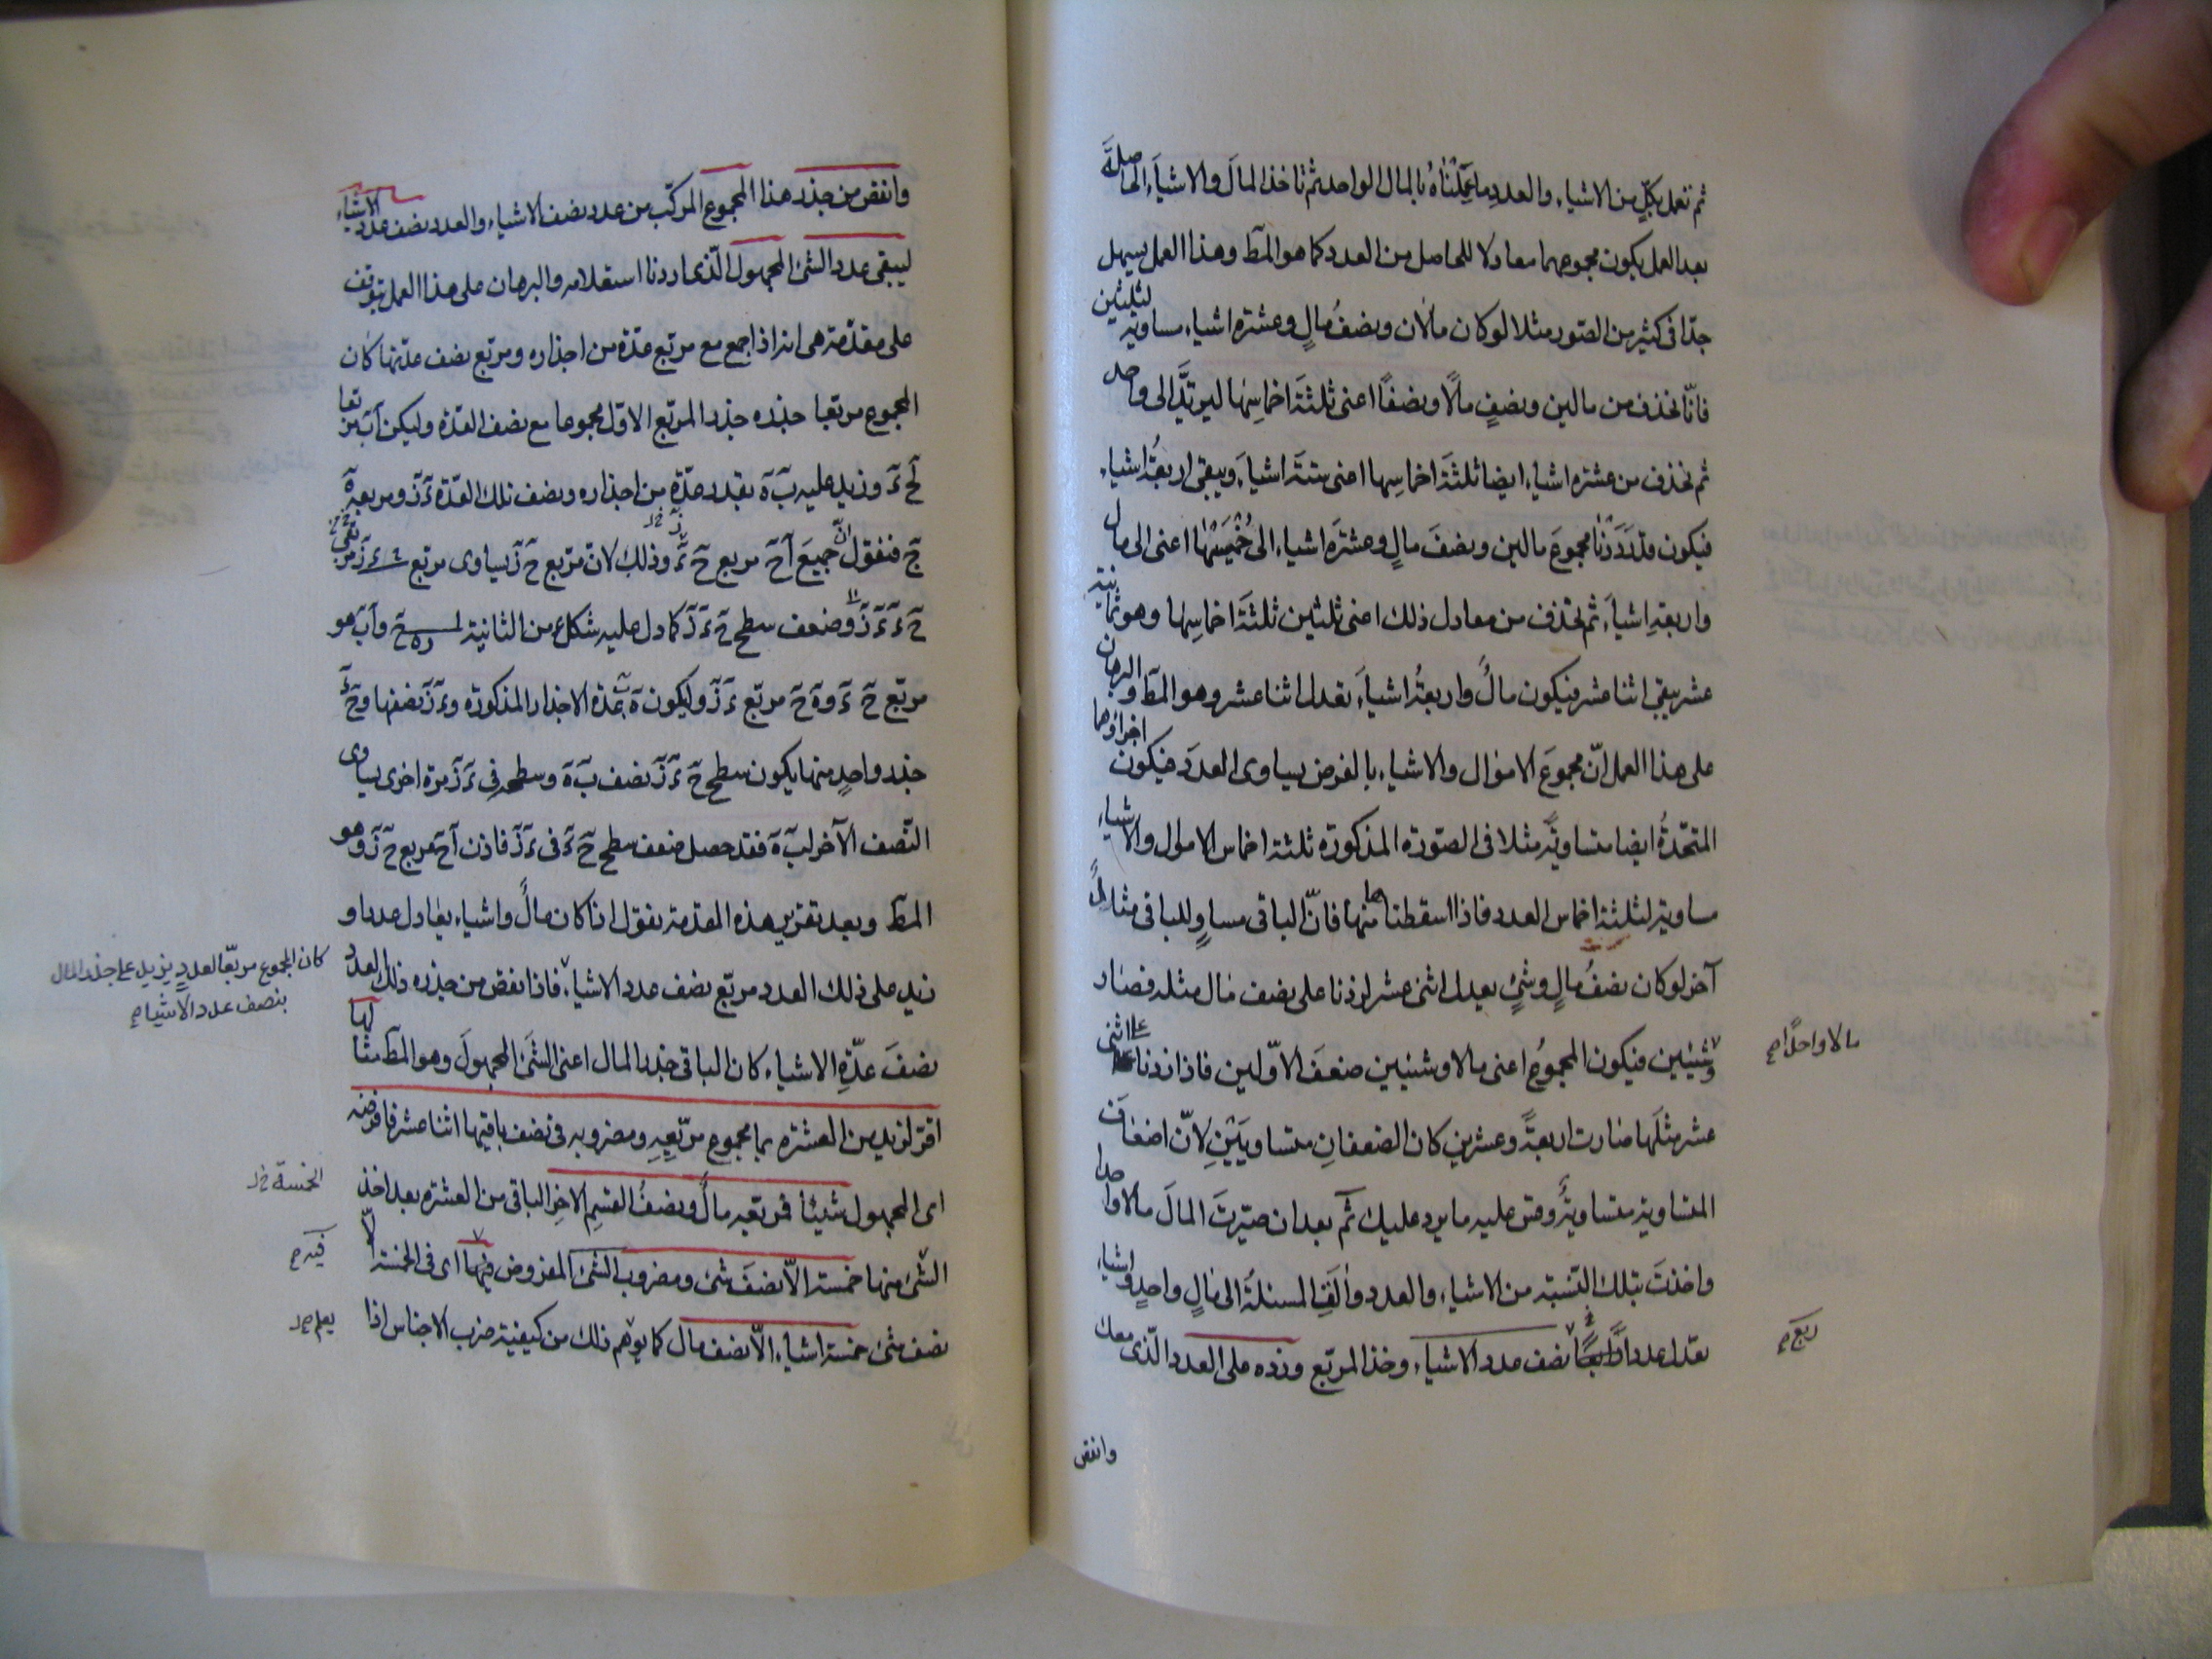 ثم تعمل بكلٍّ من الاشياء والعددِ ما عَمِلْتَاهُ بالمال الواحد ثم تاخذ المالَ والاشياَء الحاصلةَ
بعد العمل يكون مجموعهما معادلا للحاصل من العدد كما هو المطَ وهذا العمل سهل
جدّا فى كثير من الصّور مثلا لو كان مالان ونصفُ مالٍ وعشرة اشياء مساوية لثلثين
فانّا نحذف من مالين ونصفٍ مالًا ونصفًا اعنى ثلثةَ اخماسِها ليرتدَّ الى واحد
ثم نحذف من عشرة اشياء ايضا ثلثةَ اخماسِها اعنى ستةَ اشياءَ ويبقى اربعةُ اشياء
فيكون قد رَدَدْنا مجموعَ مالين ونصفَ مالٍ وعشرةَ اشياء الى خُمْسَيْها اعنى الى مال
واربعةِ اشياَء ثم نحذف من معادل ذلك اعنى ثلثين ثلثةَ اخماسِها وهو ثمانية
عشر يبقى اثنا عشر فيكون مالٌ واربعةُ اشياَء تعدل اثنا عشر وهو المطَ والبرهان
على هذا العمل انّ مجموعَ الاموال والاشياء بالفرض يساوى العددَ فيكون اجزاؤهما
المتّحدةُ ايضا متساويةً مثلا فى الصّورة المذكورة ثلثة اخماس الاموال والاشياء
مساوية لثلثة اخماس العدد فاذا اسقطنا منها فانّ الباقى مساوٍ للباقى مثالٌ
آخر لو كان نصفُ مالٍ وشئٍ يعدل اثنى عشر زدنا على نصف مال مثله فصار
مالا واحدًا صح
وشيئين فيكون المجموعُ اعنى مالا وشيئين ضعفَ الاوّلين فاذا زدنا على اثنى
عشر مثلَها صارت اربعةً وعشرين كان الضعفانِ متساويَيْنِ لانّ اضعاف
المتساوية متساويةٌ وقس عليه ما يرد عليك ثم بعد ان صيّرتَ المالَ مالا واحدا
واخذتَ بتلك النّسبة من الاشياء والعدد والَفْتَ المسئلةَ الى مالٍ واحدٍ واشياء
تعدل عددا نصف عدد الاشياء وخذ المربّع وزده على العدد الّذى معك
ربّع صح
وانقص
وانقص من جذر هذا المجموع المركّب من عدد نصف الاشياء والعدد نصف عدد الاشياء
ليبقى عدد الشئ المجهول الّذى اردنا استعلامه والبرهان على هذا العمل يتوقف
على مقدّمة هى انه اذا جمع مع مربّع عدّة من اجذاره ومربّع نصف عدّتها كان
المجموع مربعا جذره جذر المربّع الاوّل مجموعا مع نصف العدّة وليكن آبَ مربّعا
لحَ ءَ وزيد عليه بَ هَ بقدر عدّةٍ من اجذاره ونصف تلك العدّة ءَ زَ ومربعه هَ
حَ فنقول انّ جميعَ آحَ مربع حَ زَ وذلك لانّ مربّع حَ زَ يساوى مربّع
حَ ءَ ءَ زَ وضعف سطح حَ ءَ زَ كما دل عليه شكل من الثانية وآبَ هو
مربّع حَ ءَ وهَ حَ مربّع ءَ زَ وليكون هَ بَ عدّة الاجذار المذكورة وءَ زَ نصفها وحَ ءَ
جذر واحدٍ منها يكون سطح حَ ءَ زَ نصف بَ هَ وسطحه فى ءَ زَ مرة اخرى يساوى
النّصف الآخر لبَ هَ فقد حصل ضعف سطح حَ ءَ فى ءَ زَ فاذن آحَ مربع حَ زَ وهو
المطَ وبعد تقرير هذه المقدمة نقول اذا كان مالٌ واشياء يعادل عددا و
زيد على ذلك العدد مربّع نصف عدد الاشياء فاذا نقص من جذره ذلك العدد
كان المجموع مربّعا لعددٍ يزيد على جذر المال
بنصف عدد الاشياء صح
نصفَ عدّةِ الاشياء كان الباقى جذر المال اعنى الشئَ المجهولَ وهو المطَ مثالها
اقرّ لزيد من العشرة بما مجموع مربّعِهِ ومضروبه فى نصف باقيها اثنا عشر فافرضه
اى المجهول شيئا فمربّعه مالٌ ونصفُ القسمِ الآخِر الباقى من العشرة بعد اخذ
الخمسة
الشئ منها خمسة الاّ نصفَ شئ ومضروب الشئ المفروض فيها اى فى الخمسة الاّ
فيه صح
نصف شئ خمسة اشياء الاّ نصف مال كما يوهم ذلك من كيفية ضرب الاجناس اذا
يعلم